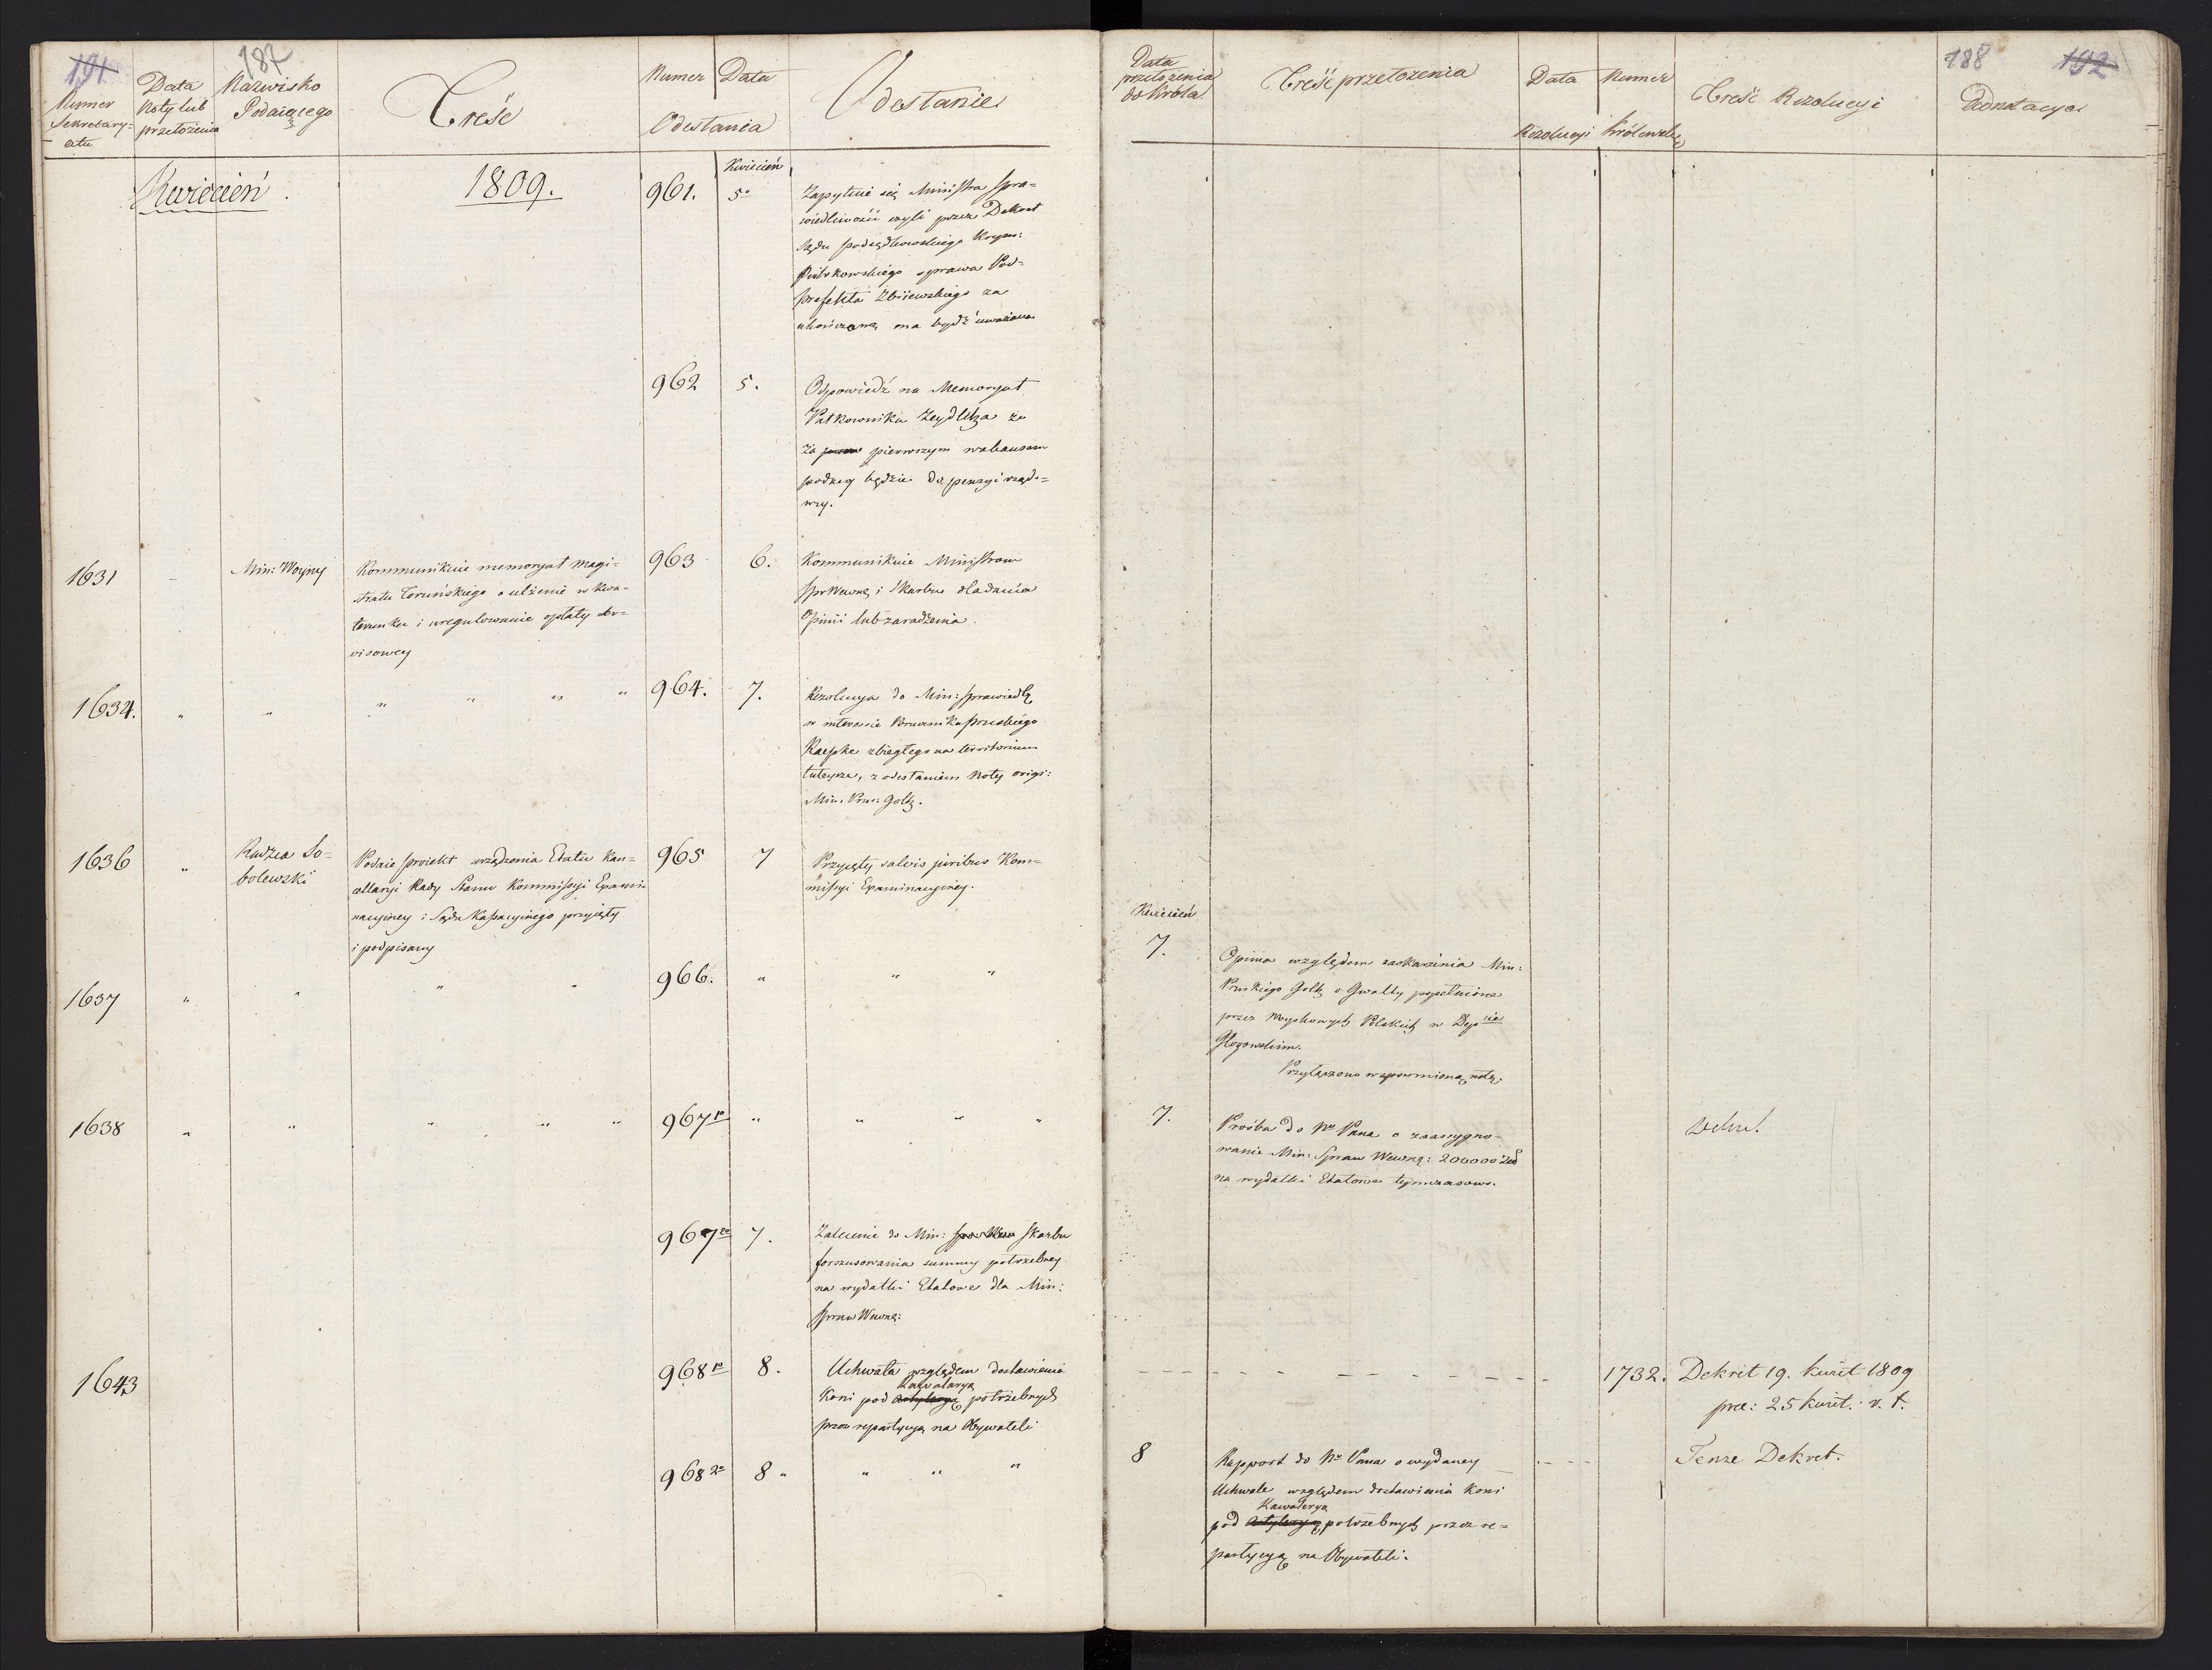 191
187
Numer
Sekretary=
atu
Data
Noty lub
przełożenia
Nazwisko
Podaiącego
Treść
Numer Data
Odesłania
Odesłanie
Kwiecień
1809.
Kwiecień
961. 5.
Zapytuie się Ministra Spra=
wiedliwości czyli przez Dekret
Sądu podsędkowskiego Krym:
Piotrkowskiego sprawa Pod=
prefekta Zbiiewskiego za
ukończoną ma bydź uważana
962 5.
Odpowiedź na Memoryał
Pułkownika Zeydlitza że
za pierwszym wakansem
podany będzie do pensyi rządo=
wey.
1631 - Min: Woyny
Kommunikuie memoryał Magi=
stratu Toruńskiego o ulżenie w kwa=
terunku i uregulowanie opłaty ser=
visowey
963 6.
Kommunikuie Ministrom
Spr Wewnę i Skarbu dla dania
Opinii lub zaradzenia.
1634. " " " " " "
964. 7.
Rezolucya do Min: Sprawiedlę
w interessie Porucznika pruskiego
Raepke zbiegłego na territorium
tuteysze, z odesłaniem Noty origi:
Min: Prus: Goltz.
1636 "
Radzca So=
bolewski
Podaie proiekt urządzenia Etatu Kan=
cellaryi Rady Stanu Kommissyi Exami
nacyiney i Sądu Kassacyinego przyięty
i podpisany
965 7
Przyięty salvis juribus Kom=
missyi Examinacyiney.
1637 " " " "
966. " " "
1638 " " " " "
967 1º " " " "
967 2º 7.
Zalecenie do Min: Spr: Wew Skarbu
forszusowania summy potrzebney
na wydatki Etatowe dla Min:
Spraw Wewnę:
1643
968 1º 8.
Uchwała względem dostawienia
Kawalaryą
Koni pod Artyleryą potrzebnych
przez repartycyą na Obywateli
968 2º 8 " " " "
188
192
Data
przełożenia
do Króla
Treść przełożenia
Data Numer
Rezolucyi Królewskię
Treść Rezolucyi
Adnotacya
Kwiecień
7.
Opinia względem zaskarżenia Min:
Pruskiego Goltz o Gwałty popełnione
przez Woyskowych Polskich w Depcie
Głogowskim.
Przyłączono wzpomnioną notę.
7.
Prośba do No Pana o zaassygno=
wanie Min: Spraw Wewnę: 200000 Złp
na wydatki Etatowe tymczasowe.
Dekret.
1732. Dekret 19. kwiet 1809
prae: 25 kwiet. v. t.
8
Rapport do No Pana o wydaney
Uchwale względem dostawienia Koni
Kawaleryą
pod Artyleryą potrzebnych przez re=
partycyą na Obywateli.
Tenże Dekret.